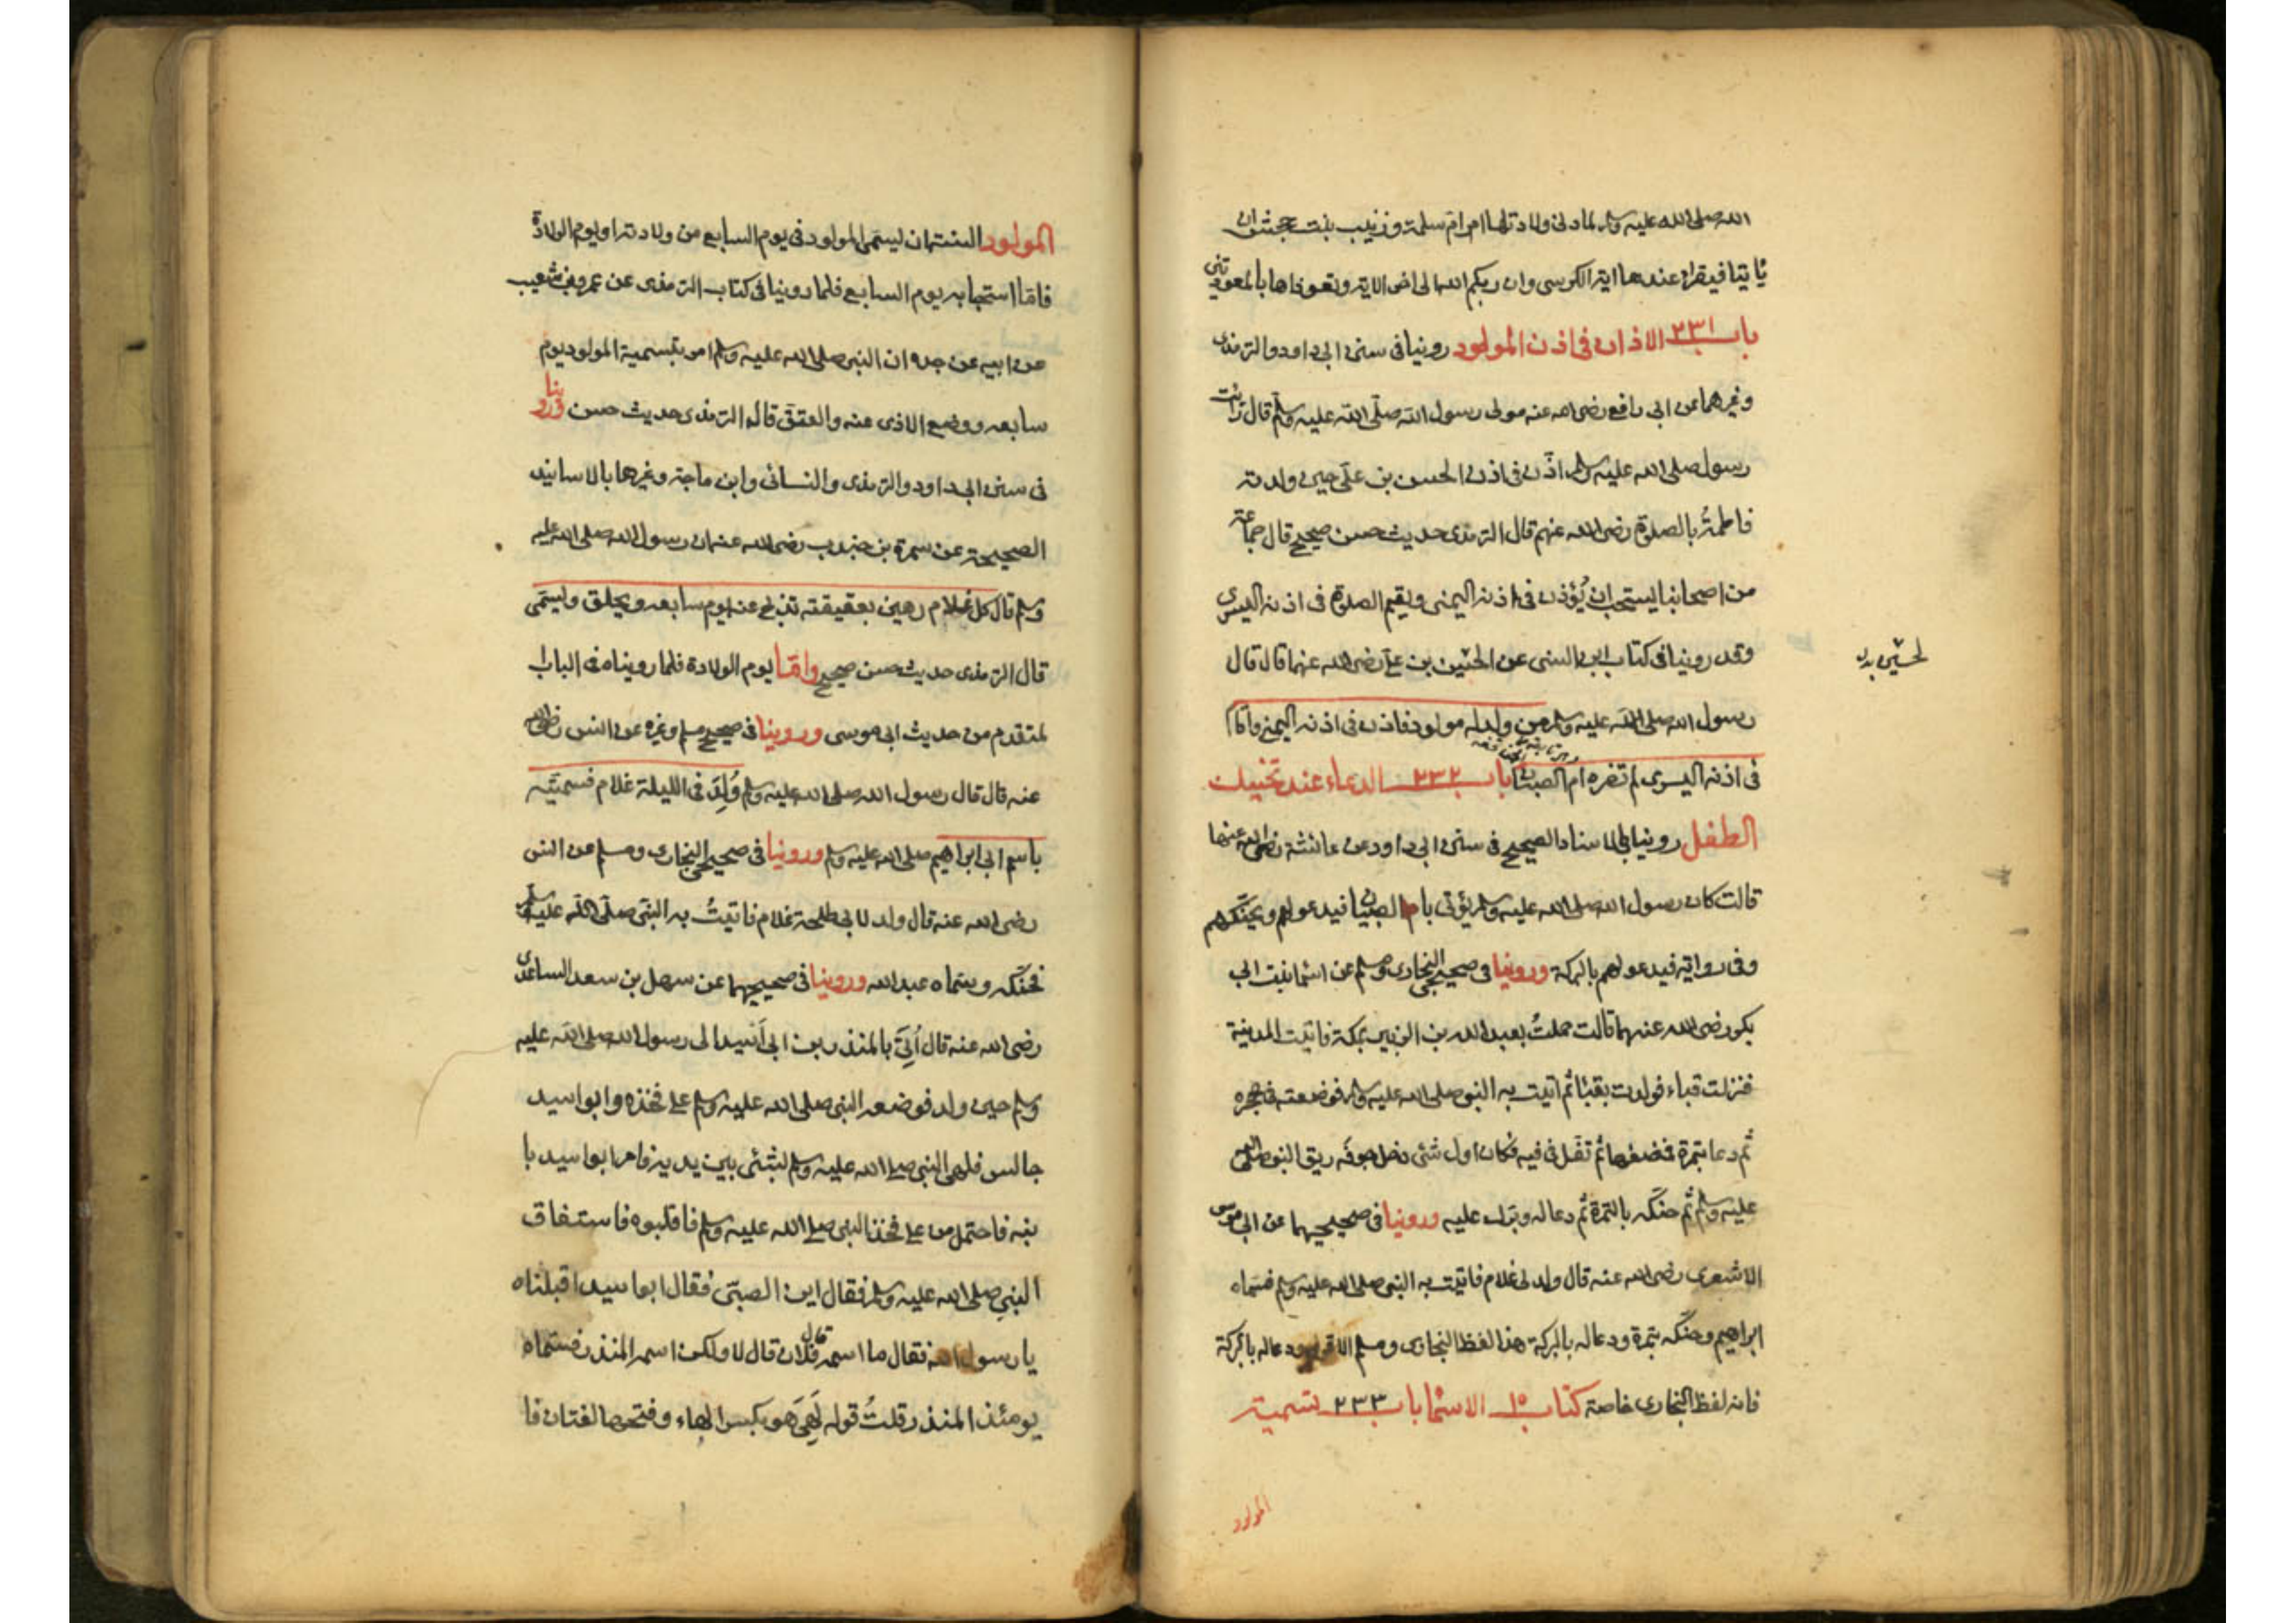 الله صلى الله عليه وسلم لما دنى ولادتها امر ام سلمة وزينب بنت جحش ان
ياتيا فيقرا عندها اية الكرسى وان ربكم الله الى اخر الاية وتعوذاها بالمعوذتين
باب ٢٣١ الاذان فى اذن المولود روينا فى سنن ابى داود والترمذى
وغيرهما عن ابى رافع رضى الله عنه مولى رسول الله صلى الله عليه وسلم قال رأيت
رسول صلى الله عليه وسلم اذّن فى اذن الحسن بن علّى حين ولدته
فاطمةُ بالصلوة رضى الله عنهم قال الترمذى حديث حسن صحيح قال جماعة
من اصحابنا يستحب ان يُؤذن فى اذنه اليمنى ويقيم الصلوة فى اذنه اليسرى
وقد روينا فى كتاب ابن السنى عن الحسين بن على رضى الله عنهما قال قال
رسول الله صلى الله عليه وسلم من ولد له مولود فاذن فى اذنه اليمنى واقام
فى اذنه اليسرى لم تضره ام الصبيان باب ٢٣٢ الدعاء عند تحنيك
الطفل روينا بالاسناد الصحيح فى سنن ابى داود عن عائشة رضى الله عنها
قالت كان رسول الله صلى الله عليه وسلم يؤتى بالصبيان فيدعو لهم ويحنّكهم
وفى رواية فيدعو لهم بالبركة وروينا فى صحيح البخارى ومسلم عن اسما بنت ابى
بكر رضى الله عنهما قالت حملتُ بعبد الله بن الزبير بمكة فاتيت المدينة
فنزلت قباء فولدت بقبا ثم اتيت به النبى صلى الله عليه وسلم فوضعته فى حجره
ثم دعا بتمرة فمضغها ثم تفل فى فيه فكان اول شئى دخل جوفه ريق النبى صلى الله
عليه وسلم ثم حنّكه بالتمرة ثم دعا له وبرك عليه وروينا فى صحيحيهما عن ابى موسى
الاشعرى رضى الله عنه قال ولد لى غلام فاتيت به النبى صلى الله عليه وسلم فسماه
ابراهيم وحنّكه بتمرة ودعا له بالبركة هذا لفظ البخارى ومسلم الا قوله ودعا له بالبركة
فانه لفظ البخارى خاصة كتاب ١٥ الاسما باب ٢٣٣ تسمية
المولود
المولود السنة ان يسمى المولود فى يوم السابع من ولادته او يوم الولادة
فامّا استحبابه يوم السابع فلما روينا فى كتاب الترمذى عن عمرو بن شعيب
عن ابيه عن جده ان النبى صلى الله عليه وسلم امر بتسمية المولود يوم
سابعه ووضع الاذى عنه والعقّ قال الترمذى حديث حسن وروينا
فى سنن ابى داود والترمذى والنسائى وابن ماجة وغيرها بالاسانيد
الصحيحة عن سمرة بن جندب رضى الله عنه ان رسول الله صلى الله عليه
وسلم قال كل غلام رهين بعقيقته تذبح عنه يوم سابعه ويحلق ويسمّى
قال الترمذى حديث حسن صحيح وامّا يوم الولادة فلما رويناه فى الباب ا
لمتقدم من حديث ابى موسى وروينا فى صحيح مسلم وغيره عن انس رضى الله
عنه قال قال رسول الله صلى الله عليه وسلم وُلِدَ فى الليلة غلام فسمّيته
باسم ابى ابراهيم صلى الله عليه وسلم وروينا فى صحيحى البخارى ومسلم عن انس
رضى الله عنه قال ولد لابى طلحة غلام فاتيتُ به النبى صلّى الله عليه وسلم
فحنّكه وسمّاه عبد الله وروينا فى صحيحيهما عن سهل بن سعد الساعدى
رضى الله عنه قال اُتِىَ بالمنذر بن ابى اُسيد الى رسول الله صلى الله عليه
وسلم حين ولد فوضعه النبى صلى الله عليه وسلم على فخذه وابو اسيد
جالس فلهى النبى صلى الله عليه وسلم بشئى بين يديه فامر ابو اسيد با
بنه فاحتمل من على فخذ النبى صلى الله عليه وسلم فاقلبوه فاستفاق
النبى صلى الله عليه وسلم فقال اين الصبىّ فقال ابو اسيد اقبلناه
يا رسول الله فقال ما اسمه قال فلان قال لا ولكن اسمه المنذر فسمّاه
يومئذ المنذر قلتُ قوله لَهِىَ هو بكسر الهاء وفتحها لغتان فا